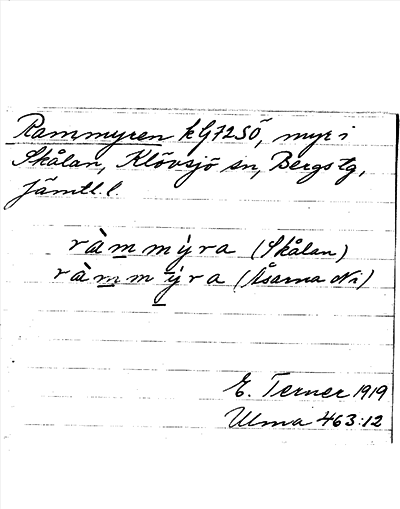 Rammyren kG72SÖ, myr i
Skålan, Klövsjö sn, Bergs tg,
Jämtl. l.
ràmmỳra (Skålan)
ràmmỳra (Åsarna Ni)
E. Terner 1919
Ulma 463:12